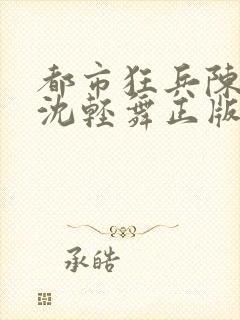 都市狂兵陳
沈輕舞正版
承皓